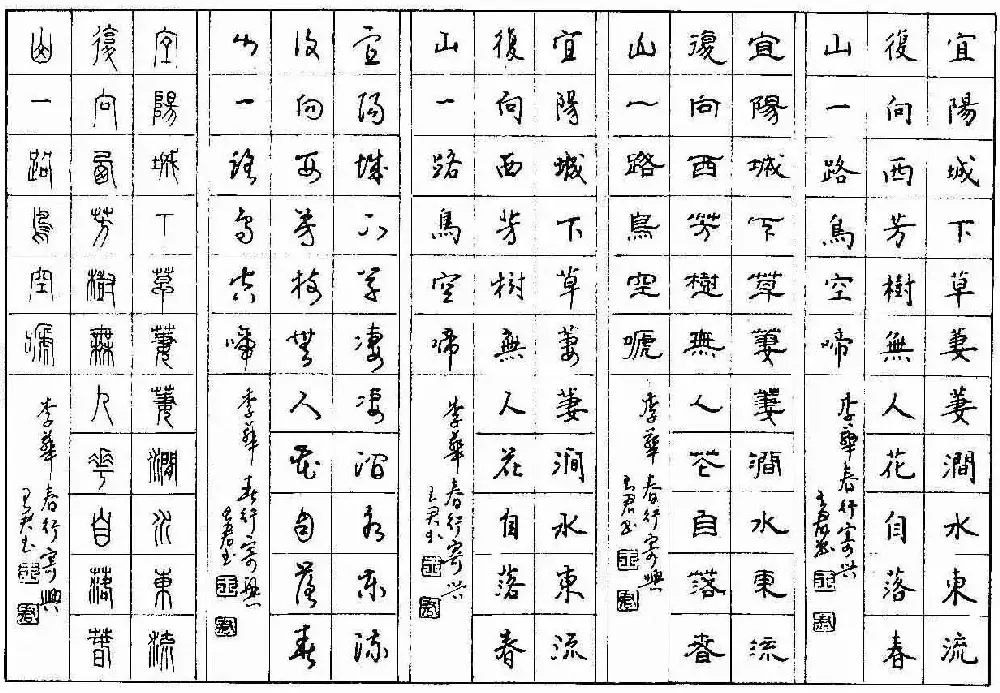 宜陽城下草萋萋澗水東流
復向西芳樹無人花自落春
山一路鳥空啼
李華春行寄興
宜陽城下草萋萋澗水東流
復向西芳樹無人花自落春
山一路鳥空嗁
李華春行寄興
宜陽城下草萋萋澗水東流
復向西芳樹無人花自落春
山一路鳥空啼
李華春行寄興
宜陽城下草凄凄澗水東流
復向西芳樹無人花自落春
山一路鳥空啼
李華春行寄興
宜陽城下草萋萋澗水東流
復向西芳樹無人花自落春
山一路鳥空嗁
李華春行寄興